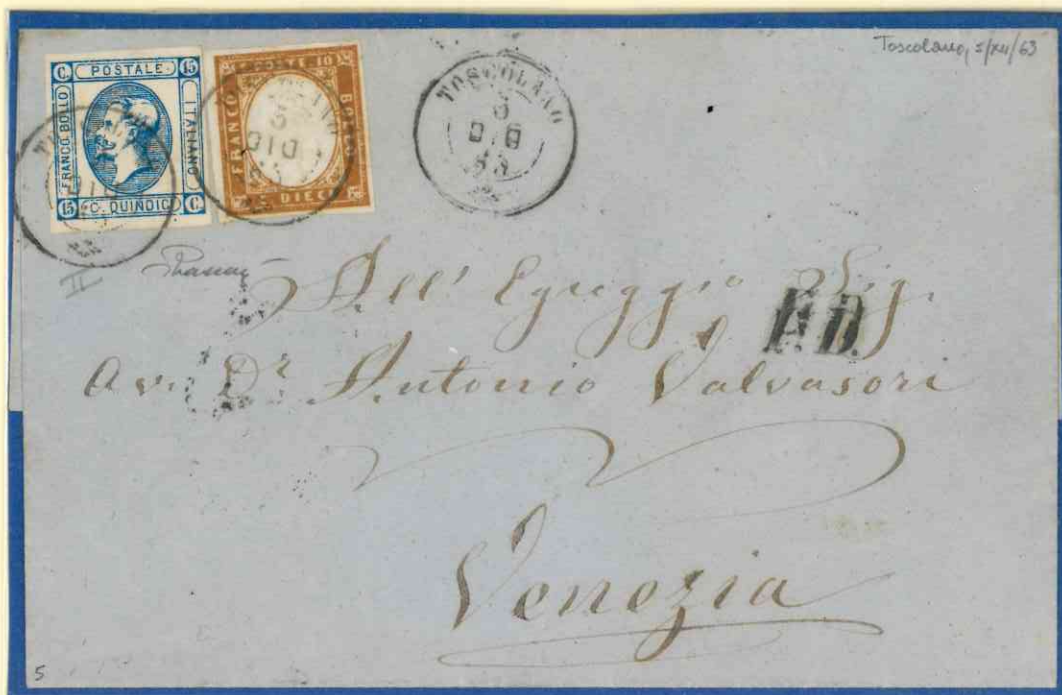 Toscolano, 5/XII/63
C. POSTALE 15
FRANCO BOLLO
ITALIANO
15 C. QUINDICI C.
POSTE 10
FRANCO
BOLLO
C. DIECI
TOSCOLANO
5
DIC
63
TOSCOLANO
5
DIC
63
II
All' Egreggio Sig.
P.D.
Avv. Dr Antonio Valvasori
Venezia
5